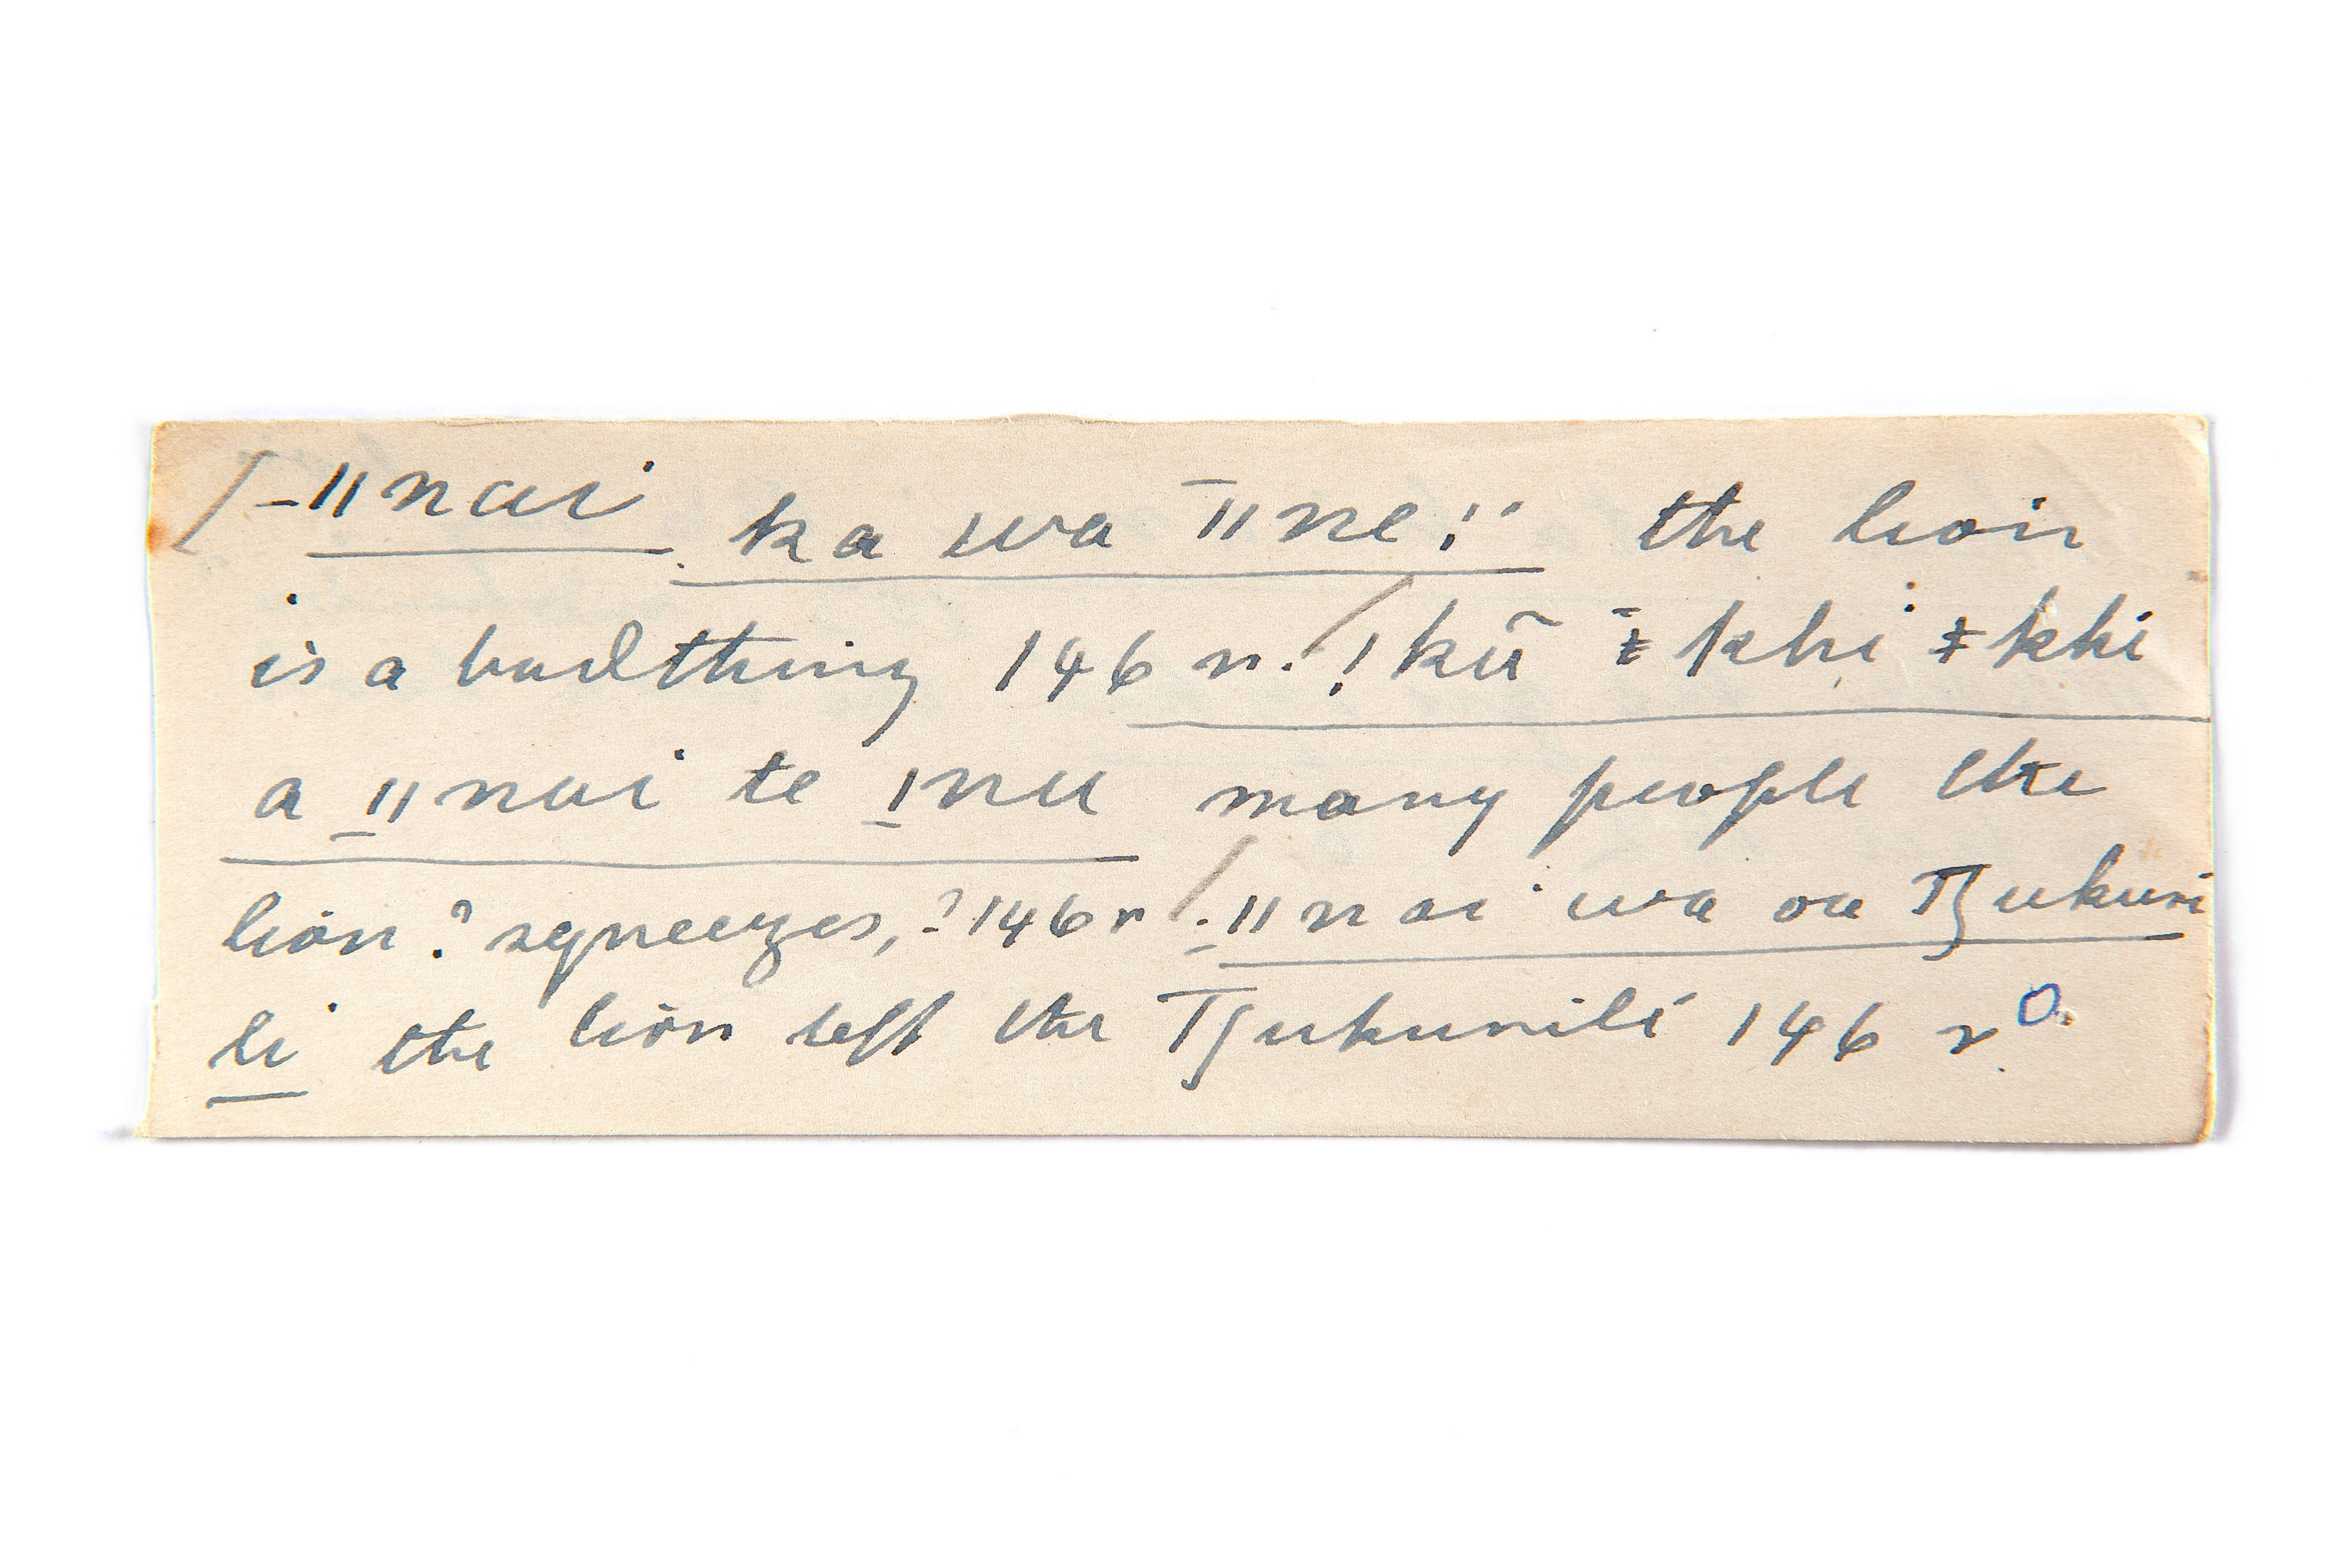 [-ǁnai ka wa ‾ǁne!'' the lion
is a bad thing 146 r. !kũ ‾ǂkhi ǂkhi
a _ǁnai te _ǀnu many people the
lion ? squeezes, ? 146 r /. _ǁnai wa oa Tʃukuni
li the lion left the Tʃukunili 146 r.